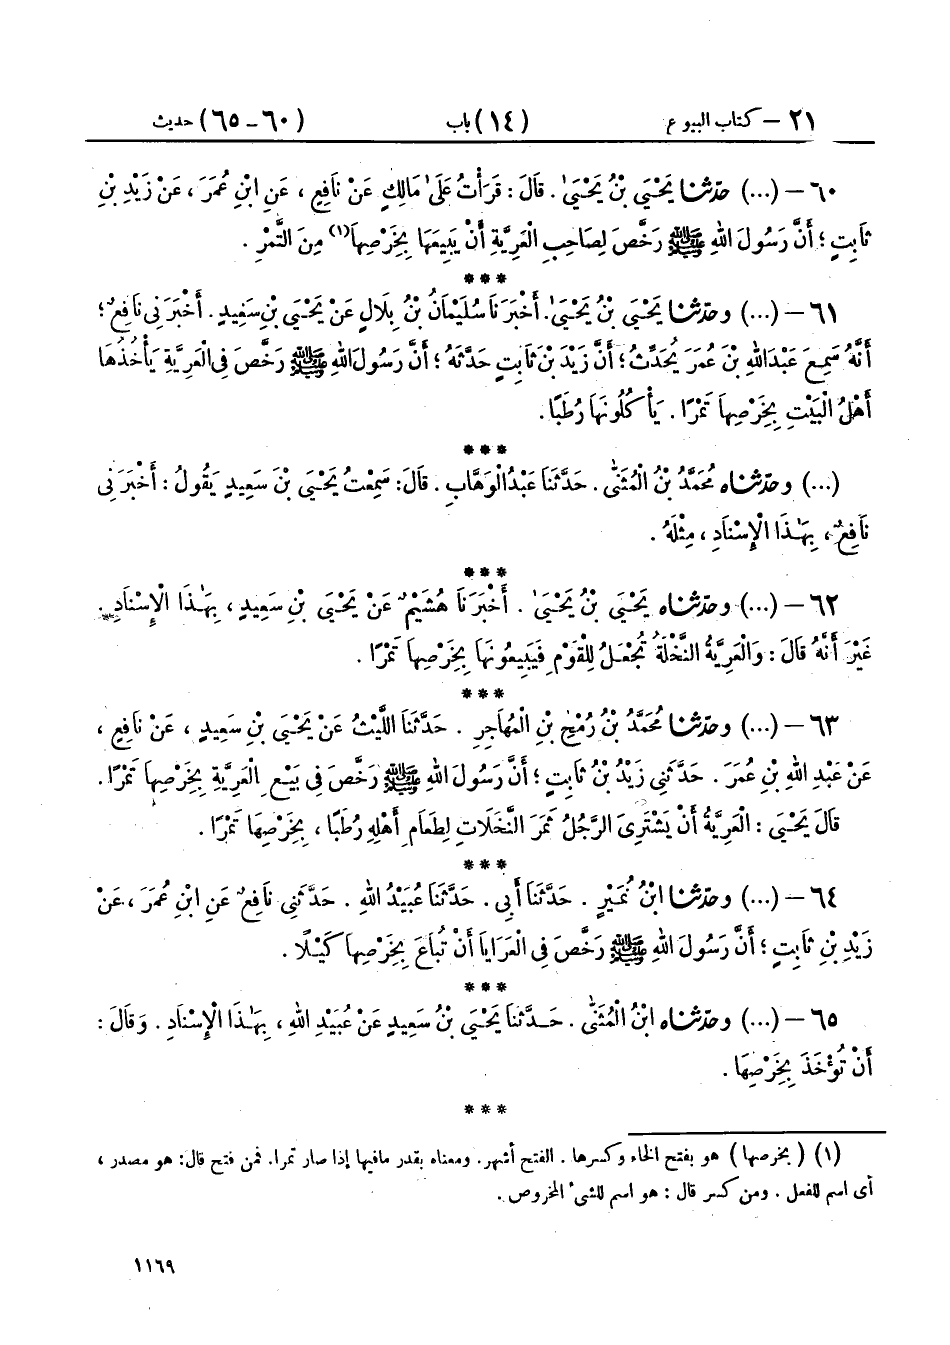 ٢١ – كتاب البيوع (١٤) باب (٦٠ – ٦٥) حديث
٦٠ – (...) حدّثنا يَحْيَى بْنُ يَحْيَىٰ . قَالَ : قَرَأْتُ عَلَىٰ مَالِكٍ عَنْ نَافِعٍ ، عَنِ ابْنِ عُمَرَ ، عَنْ زَيْدِ بْنِ
ثَابِتٍ ؛ أَنَّ رَسُولَ اللهِ ﷺ رَخَّصَ لِصَاحِبِ الْعَرِيَّةِ أَنْ يَبِيعَهَا بِخَرْصِهَا(١) مِنَ التَّمْرِ .
***
٦١ – (...) وحدّثنا يَحْيَى بْنُ يَحْيَىٰ. أَخْبَرَنَا سُلَيْمَانُ بْنُ بِلَالٍ عَنْ يَحْيَى بْنِ سَعِيدٍ . أَخْبَرَنِي نَافِعٌ ؛
أَنَّهُ سَمِعَ عَبْدَ اللهِ بْنَ عُمَرَ يُحَدِّثُ ؛ أَنَّ زَيْدَ بْنَ ثَابِتٍ حَدَّثَهُ ؛ أَنَّ رَسُولَ اللهِ ﷺ رَخَّصَ فِي الْعَرِيَّةِ يَأْخُذُهَا
أَهْلُ الْبَيْتِ بِخَرْصِهَا تَمْرًا . يَأْكُلُونَهَا رُطَبًا .
***
(...) وحدّثناه مُحَمَّدُ بْنُ الْمُثَنَّى . حَدَّثَنَا عَبْدُ الْوَهَّابِ . قَالَ: سَمِعْتُ يَحْيَى بْنَ سَعِيدٍ يَقُولُ : أَخْبَرَنِي
نَافِعٌ ، بِهَٰذَا الْإِسْنَادِ ، مِثْلَهُ .
***
٦٢ – (...) وحدّثناه يَحْيَى بْنُ يَحْيَىٰ . أَخْبَرَنَا هُشَيْمٌ عَنْ يَحْيَى بْنِ سَعِيدٍ ، بِهَٰذَا الْإِسْنَادِ .
غَيْرَ أَنَّهُ قَالَ : وَالْعَرِيَّةُ النَّخْلَةُ تُجْعَلُ لِلْقَوْمِ فَيَبِيعُونَهَا بِخَرْصِهَا تَمْرًا .
***
٦٣ – (...) وحدّثنا مُحَمَّدُ بْنُ رُمْحِ بْنِ الْمُهَاجِرِ . حَدَّثَنَا اللَّيْثُ عَنْ يَحْيَى بْنِ سَعِيدٍ ، عَنْ نَافِعٍ ،
عَنْ عَبْدِ اللهِ بْنِ عُمَرَ . حَدَّثَنِي زَيْدُ بْنُ ثَابِتٍ ؛ أَنَّ رَسُولَ اللهِ ﷺ رَخَّصَ فِي بَيْعِ الْعَرِيَّةِ بِخَرْصِهَا تَمْرًا .
قَالَ يَحْيَى : الْعَرِيَّةُ أَنْ يَشْتَرِيَ الرَّجُلُ ثَمَرَ النَّخَلَاتِ لِطَعَامِ أَهْلِهِ رُطَبًا ، بِخَرْصِهَا تَمْرًا .
***
٦٤ – (...) وحدّثنا ابْنُ نُمَيْرٍ . حَدَّثَنَا أَبِي . حَدَّثَنَا عُبَيْدُ اللهِ . حَدَّثَنِي نَافِعٌ عَنِ ابْنِ عُمَرَ ، عَنْ
زَيْدِ بْنِ ثَابِتٍ ؛ أَنَّ رَسُولَ اللهِ ﷺ رَخَّصَ فِي الْعَرَايَا أَنْ تُبَاعَ بِخَرْصِهَا كَيْلًا .
***
٦٥ – (...) وحدّثناه ابْنُ الْمُثَنَّى . حَدَّثَنَا يَحْيَى بْنُ سَعِيدٍ عَنْ عُبَيْدِ اللهِ ، بِهَٰذَا الْإِسْنَادِ . وَقَالَ :
أَنْ تُؤْخَذَ بِخَرْصِهَا .
***
(١) ( بخرصها ) هو بفتح الخاء وكسرها . الفتح أشهر. ومعناه بقدر مافيها إذا صار تمرا. فمن فتح قال: هو مصدر ،
أى اسم للفعل . ومن كسر قال : هو اسم للشئ المخروص .
١١٦٩